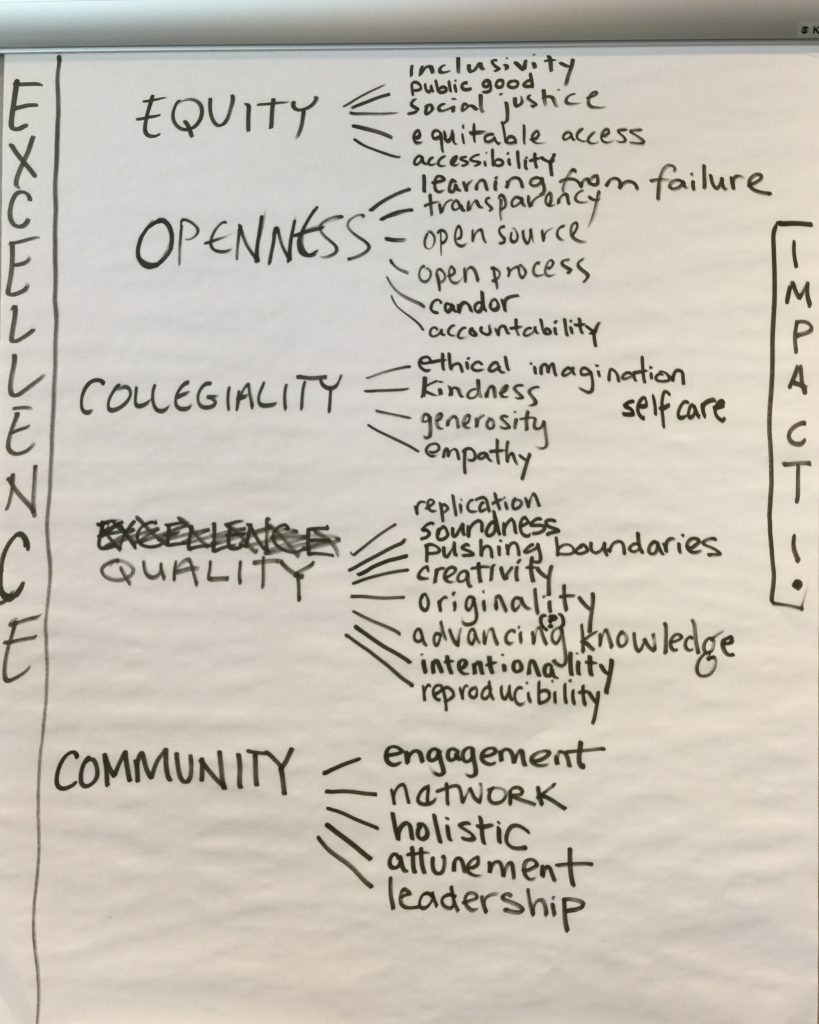 EXCELLENCE
EQUITY
inclusivity
public good
social justice
equitable access
accessibility
OPENNESS
learning from failure
transparency
open source
open process
candor
accountability
COLLEGIALITY
ethical imagination
kindness
self care
generosity
empathy
EXCELLENCE
QUALITY
replication
soundness
pushing boundaries
creativity
originality
(?)
advancing knowledge
intentionality
reproducibility
COMMUNITY
engagement
NETWORK
holistic
attunement
leadership
IMPACT!